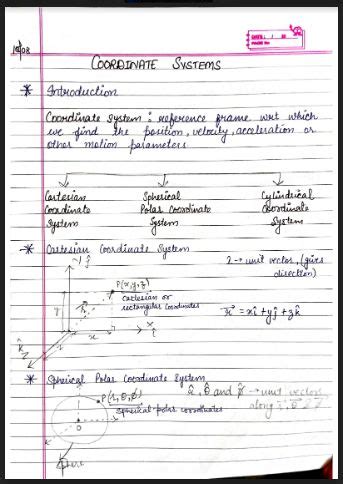 DATE: / /
PAGE NO.:
COORDINATE SYSTEMS
* Introduction
Coordinate system : reference frame wrt which
we find the position, velocity, acceleration or
other motion parameters
Cartesian Spherical Cylindrical
Coordinate Polar Coordinate Coordinate
System System System
* Cartesian Coordinate System
ĵ
→ unit vector, (gives
direction)
P(x,y,z)
Cartesian or
rectangular coordinates
r⃗ = xî + yĵ + zk̂
y
x
î
z
k̂
* Spherical Polar Coordinate System
r̂, θ̂ and φ̂ → unit vectors
P(r,θ,φ)
along
Spherical polar coordinates
O